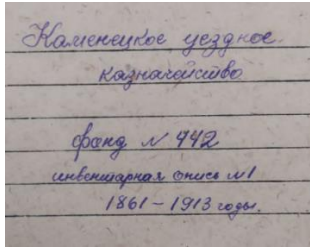 Каменецкое уездное
казначейство
фонд N 442
инвентарная опись N1
1861 - 1913 годы.